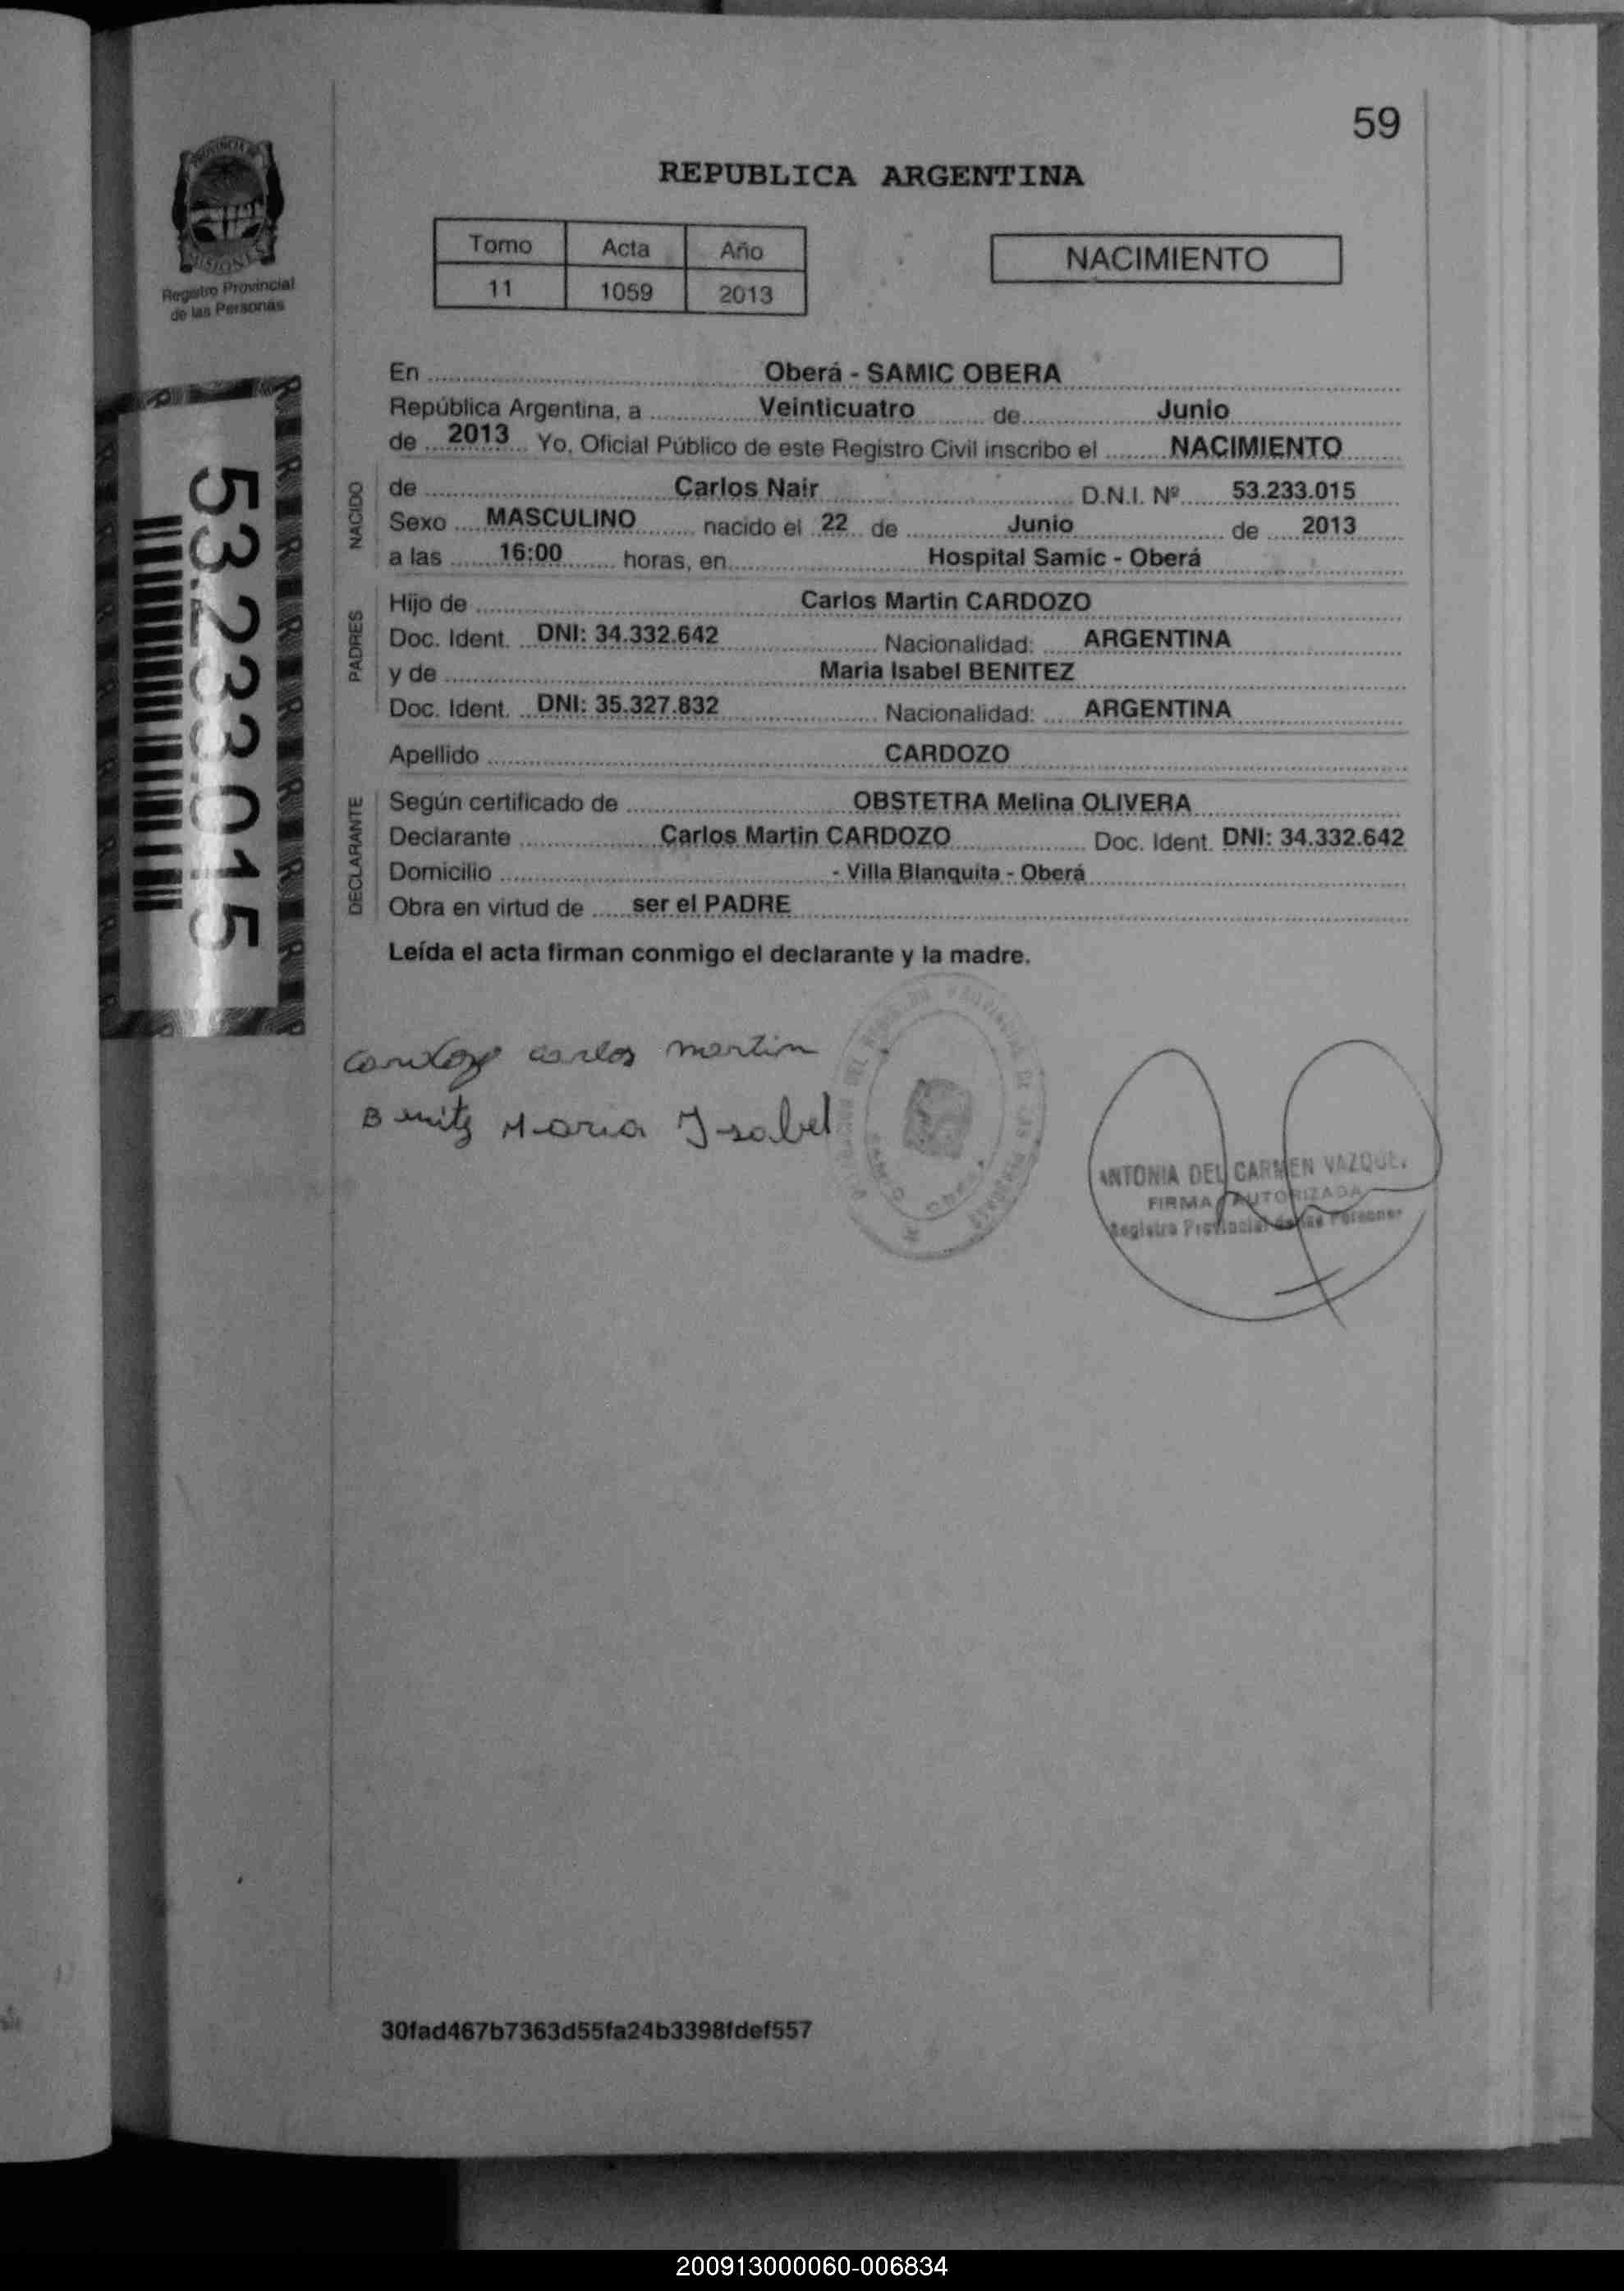 59
REPUBLICA ARGENTINA
PROVINCIA DE
MISIONES
Registro Provincial
de las Personas
Tomo Acta Año
11 1059 2013
NACIMIENTO
53.233.015
En Oberá - SAMIC OBERA
República Argentina, a Veinticuatro de Junio
de 2013 Yo, Oficial Público de este Registro Civil inscribo el NACIMIENTO
NACIDO
de Carlos Nair D.N.I. Nº 53.233.015
Sexo MASCULINO nacido el 22 de Junio de 2013
a las 16:00 horas, en Hospital Samic - Oberá
PADRES
Hijo de Carlos Martin CARDOZO
Doc. Ident. DNI: 34.332.642 Nacionalidad: ARGENTINA
y de Maria Isabel BENITEZ
Doc. Ident. DNI: 35.327.832 Nacionalidad: ARGENTINA
Apellido CARDOZO
DECLARANTE
Según certificado de OBSTETRA Melina OLIVERA
Declarante Carlos Martin CARDOZO Doc. Ident. DNI: 34.332.642
Domicilio - Villa Blanquita - Oberá
Obra en virtud de ser el PADRE
Leída el acta firman conmigo el declarante y la madre.
Cardozo carlos martin
Benitz Maria Isabel
ANTONIA DEL CARMEN VAZQUEZ
FIRMA AUTORIZADA
Registro Provincial de las Personas
30fad467b7363d55fa24b3398fdef557
200913000060-006834